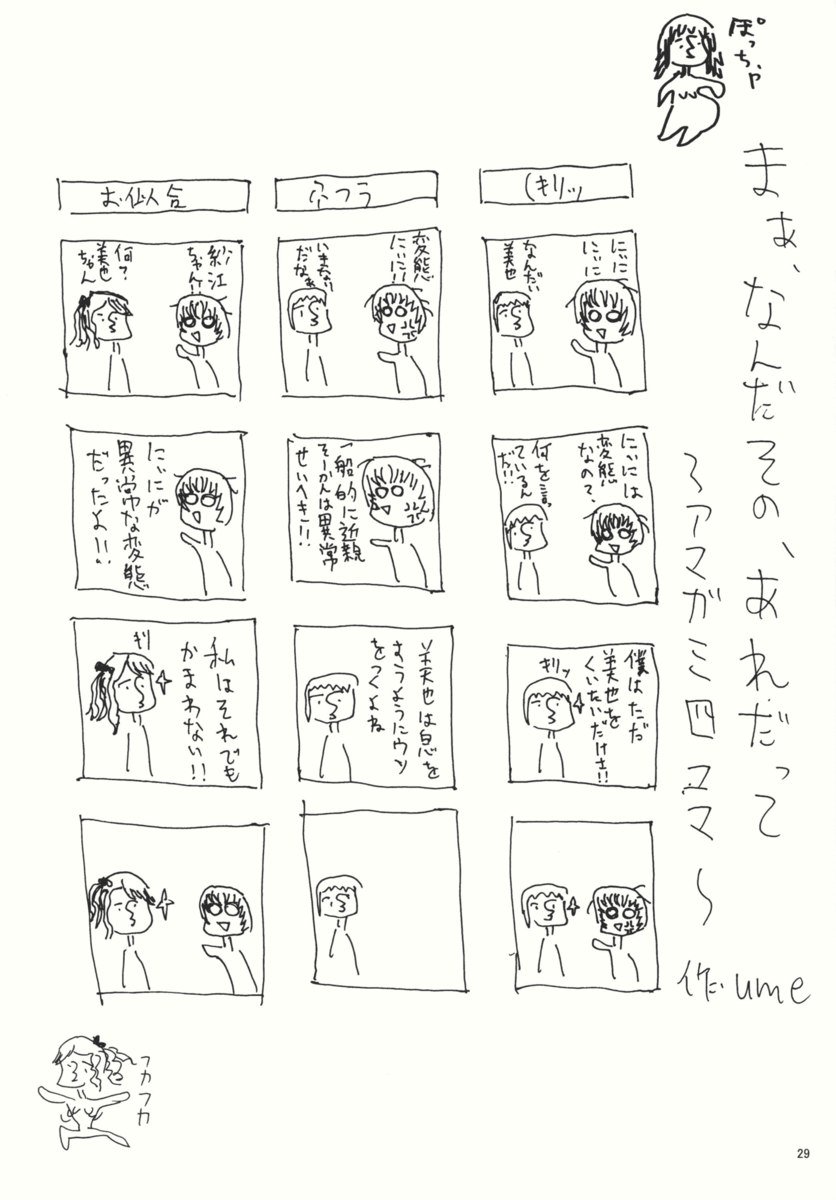 ぽっちゃ
まぁ、なんだその、あれだって
〜アマガミ四コマ〜
作:ume
(キリッ
にぃに
にぃに
なんだい
美也
にぃには
変態
なの?
何を言っ
ているん
だ!!
僕はただ
美也を
くいたいだけさ!!
キリッ
ふつう
変態
にぃに!!
いまさら
だなぁ
一般的に近親
そーかんは異常
せいへき!!
美也は息を
すうようにウソ
をつくよね
お似合
紗江
ちゃん!!
何?
美也
ちゃん
にぃにが
異常な変態
だったよ!!
キリ
私はそれでも
かまわない!!
フカフカ
29